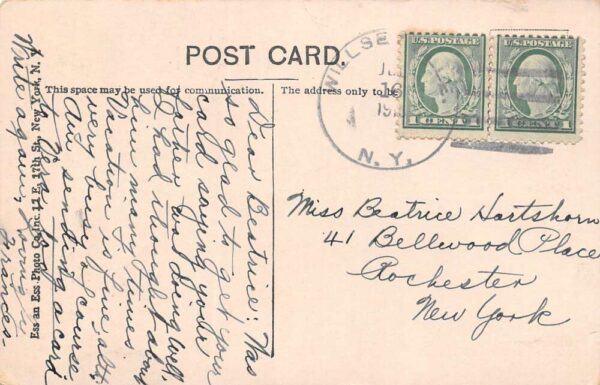 POST CARD.
This space may be used for communication.
The address only to be
Ess an Ess Photo Co., Inc. 11 E. 17th St., New York, N. Y.
WILLSE
N. Y.
U.S. POSTAGE
1 CENT 1
U.S. POSTAGE
1 CENT 1
Dear Beatrice: Was
so glad to get your
card saying your
father was doing well.
I had thought about
him many times
Vacation is fine, altho
very busy of course
Am sending a card
to Vera, too.
Write again, Yours in
Frances
Miss Beatrice Hartshorn
41 Bellwood Place
Rochester
New York